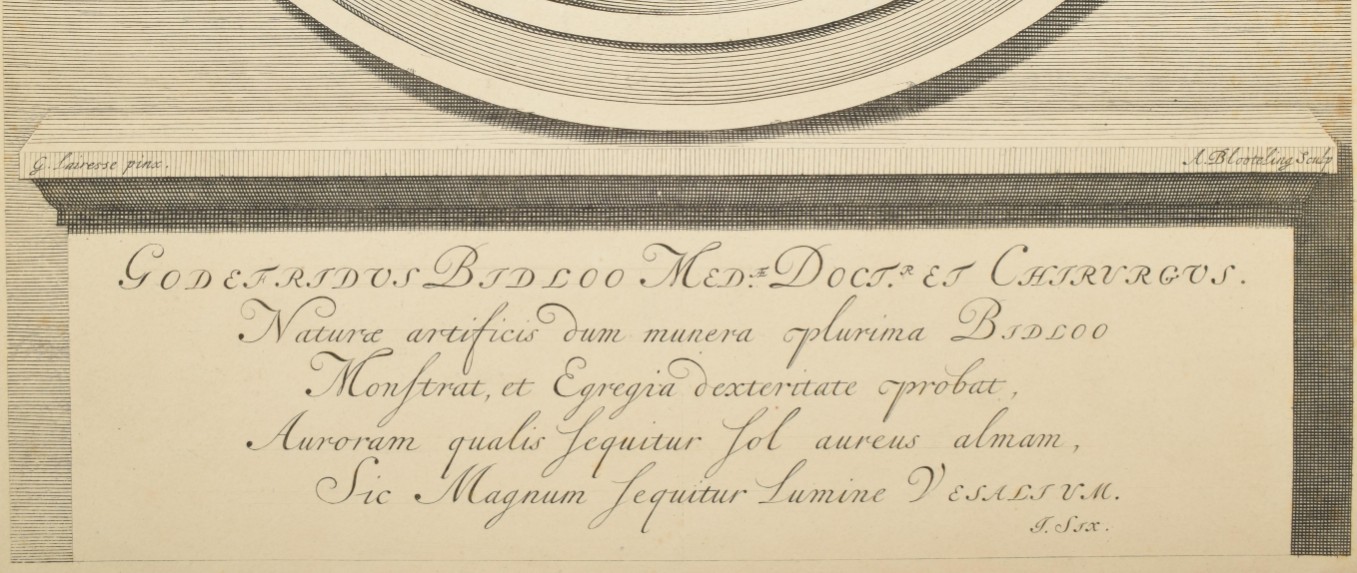 G. Lairesse pinx.
A. Blooteling Sculp
GODEFRIDVS BIDLOO MED.Æ DOCT.R ET CHIRVRGVS.
Naturæ artificis dum munera plurima BIDLOO
Monſtrat, et Egregia dexteritate probat,
Auroram qualis ſequitur ſol aureus almam,
Sic Magnum ſequitur Lumine VESALIVM.
J. SIX.